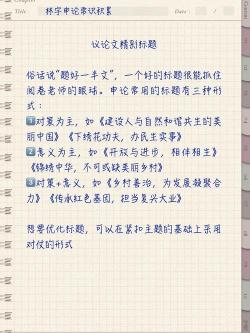 Chapter
Title
林字申论常识积累
Date
议论文精彩标题
俗话说“题好一半文”，一个好的标题很能抓住
阅卷老师的眼球。申论常用的标题有三种形
式：
1对策为主，如《建设人与自然和谐共生的美
丽中国》《下绣花功夫，办民生实事》
2意义为主，如《开放与进步，相伴相生》
《锦绣中华，不可或缺美丽乡村》
3对策+意义，如《乡村善治，为发展凝聚合
力》《传承红色基因，担当复兴大业》
想要优化标题，可以在紧扣主题的基础上采用
对仗的形式